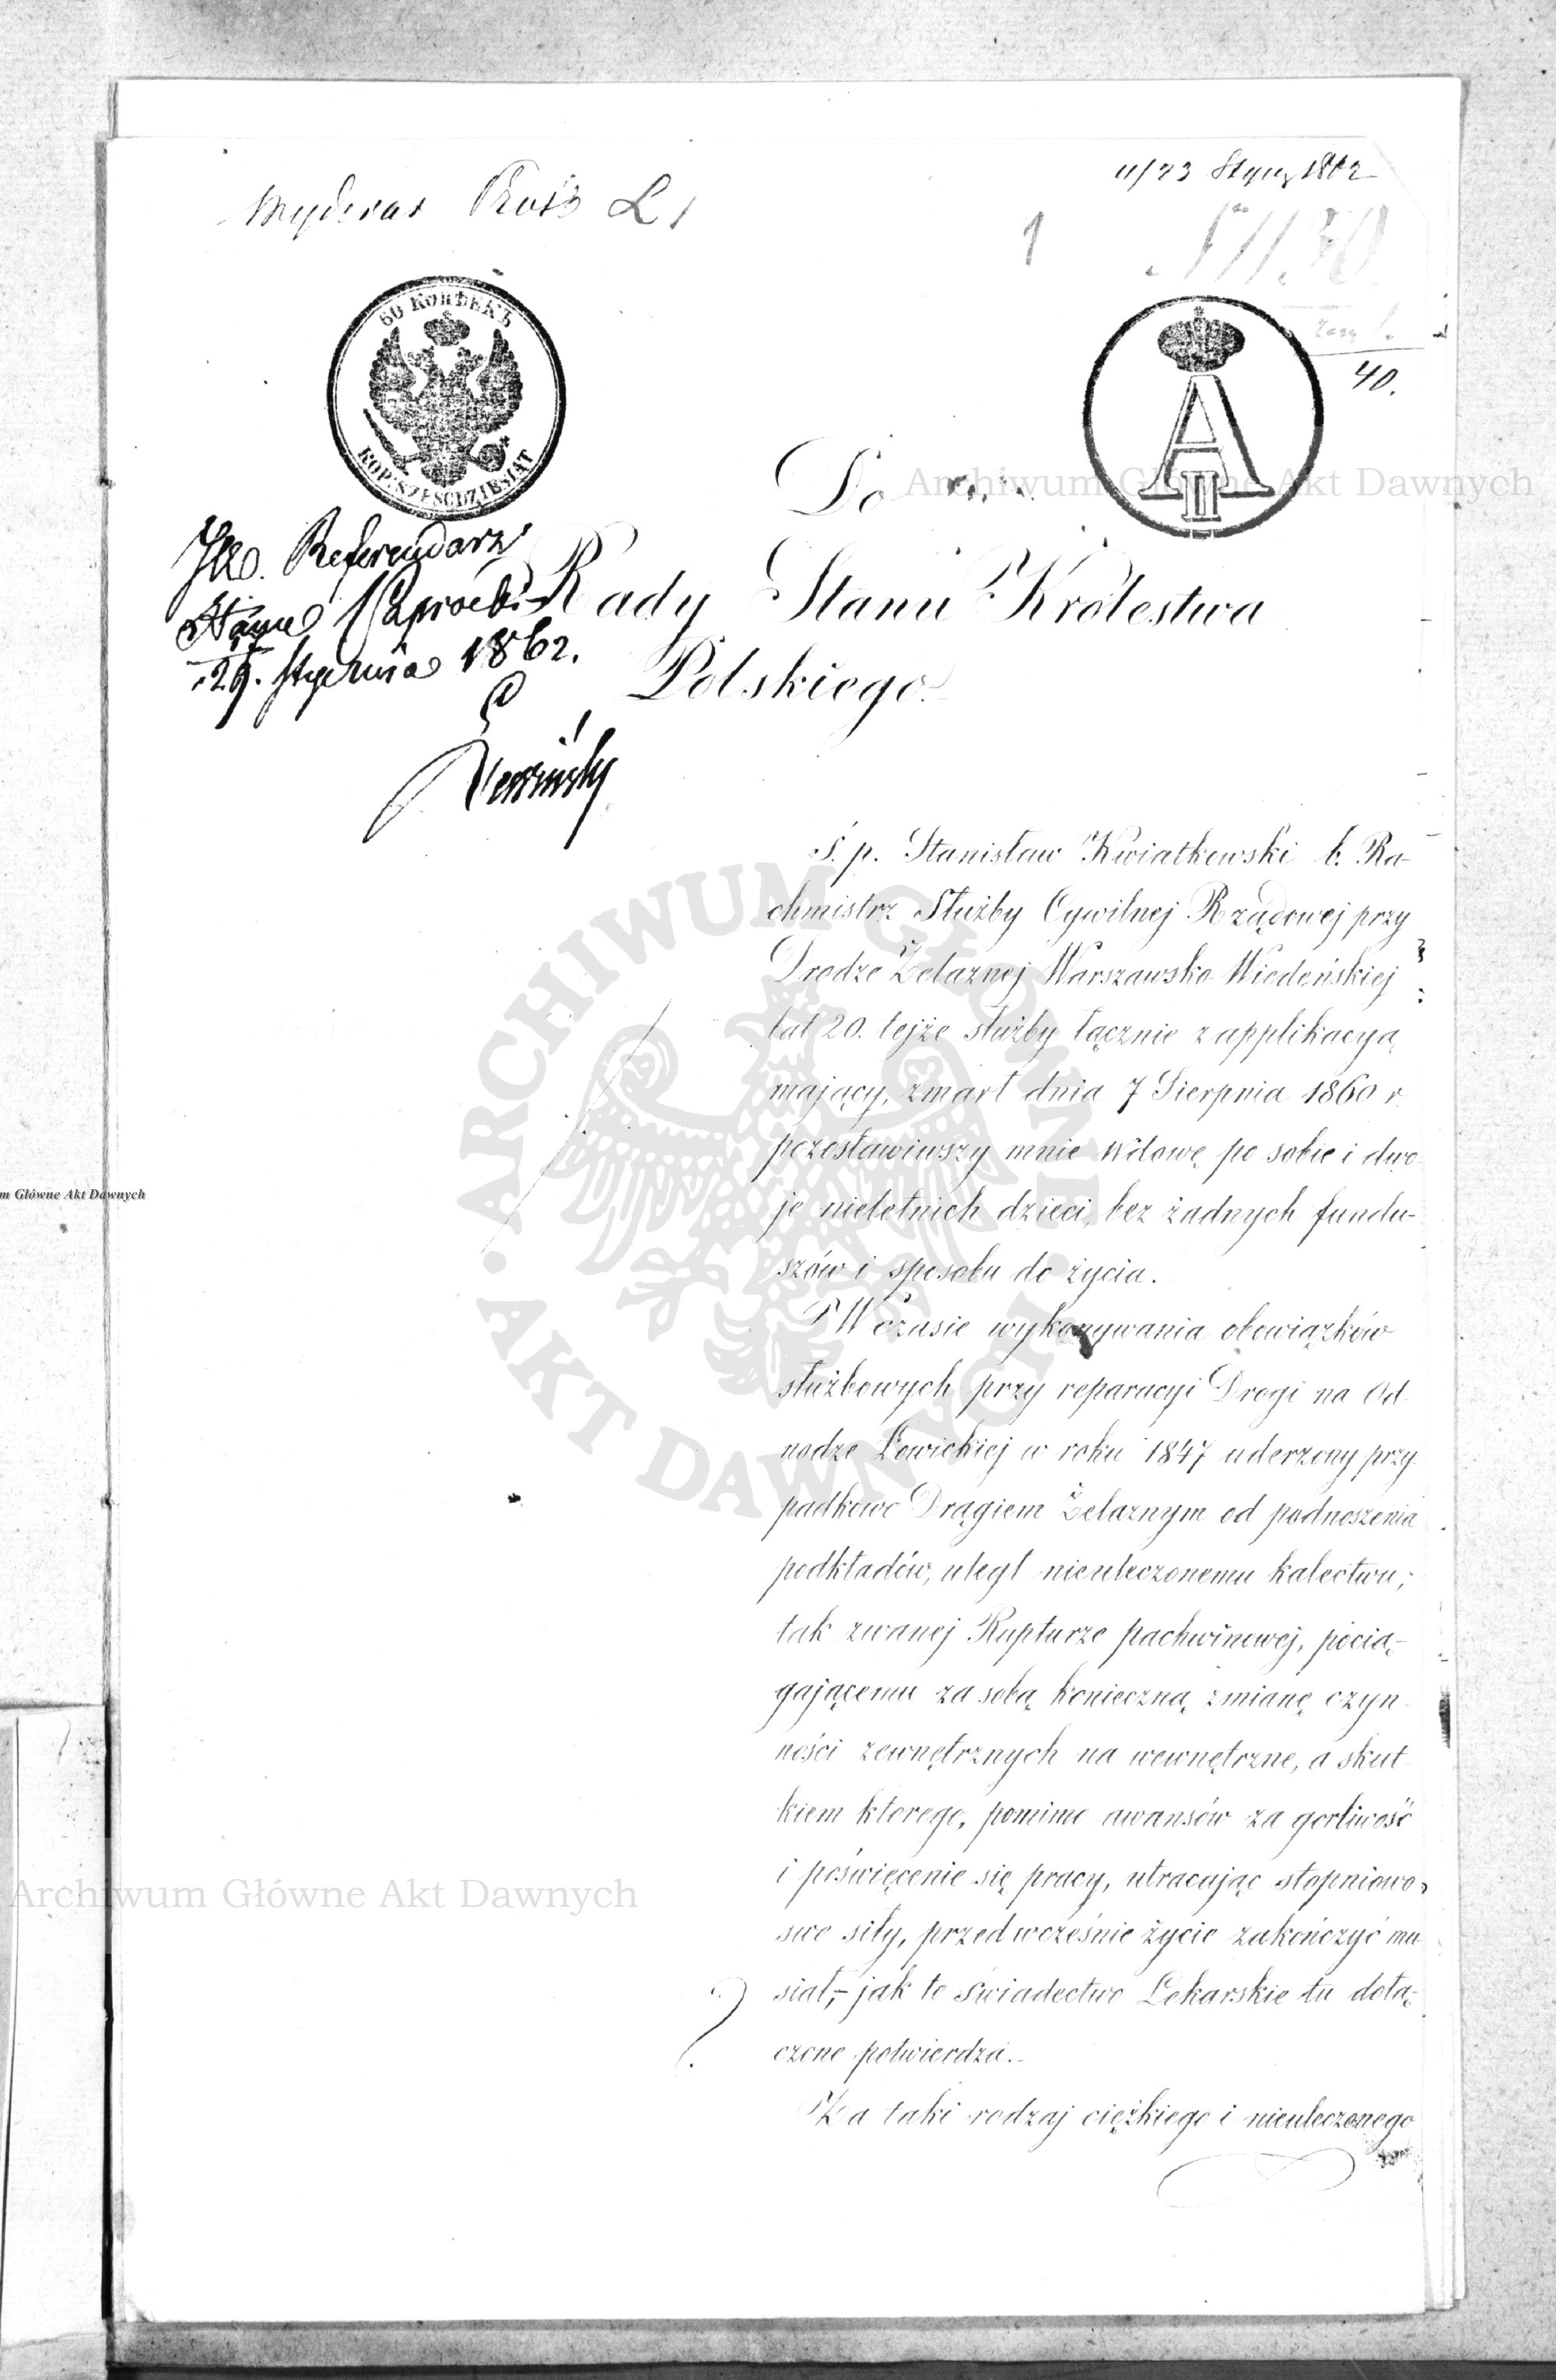 11/23 Stycz 1862
Wydział Próśb L 1
1
40.
60 КОПѢЕКЪ
KOP: SZEŚĆDZIESIĄT
A II
Do
Rady Stanu Królestwa
Polskiego.
JW. Referendarz
Stanu
29. Stycznia 1862.
Ś. p. Stanisław Kwiatkowski b. Ra-
chmistrz Służby Cywilnej Rządowej przy
Drodze Żelaznej Warszawsko-Wiedeńskiej
lat 20. tejże służby łącznie z applikacyą
mający, zmarł dnia 7 Sierpnia 1860 r.
pozostawiwszy mnie wdowę po sobie i dwo-
je nieletnich dzieci, bez żadnych fundu-
szów i sposobu do życia.
W czasie wykonywania obowiązków
służbowych przy reparacyi Drogi na Od-
nodze Łowickiej w roku 1847 uderzony przy-
padkowo Drągiem Żelaznym od podnoszenia
podkładów, uległ nieuleczonemu kalectwu;
tak zwanej Rupturze pachwinowej, pocią-
gającemu za sobą konieczną zmianę czyn-
ności zewnętrznych na wewnętrzne, a skut-
kiem którego, pomimo awansów za gorliwość
i poświęcenie się pracy, utracając stopniowo
swe siły, przedwcześnie życie zakończyć mu-
siał, – jak to świadectwo Lekarskie tu dołą-
czone potwierdza.
Za taki rodzaj ciężkiego i nieuleczonego
ARCHIWUM GŁÓWNE AKT DAWNYCH
Archiwum Główne Akt Dawnych
m Główne Akt Dawnych
Archiwum Główne Akt Dawnych